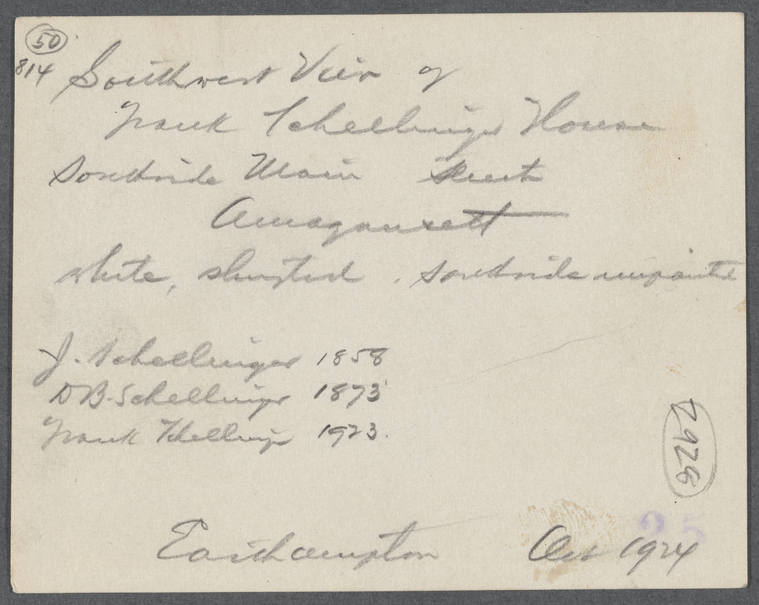 50
814 Southwest View of
Frank Schellinger House
Southside Main Street
Amagansett
white, shingled. Southside unpainted
J. Schellinger 1858
D B. Schellinger 1873
Frank Schellinger 1923.
2928
25
Easthampton Oct 1924